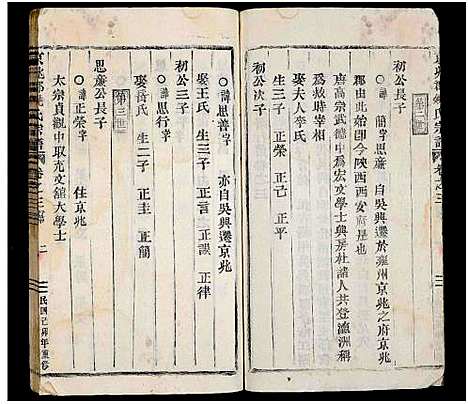 第二世
初公長子
○諱思廉 簡字 自吳興遷於雍州京兆之府京兆
郡由此始卽今陝西西安府是矣
唐高宗武德中爲宏文學士與房杜諸人共登瀛洲稱
爲救時宰相
娶夫人李氏
生三子 正榮 正己 正平
初公次子
○諱思善字 亦自吳興遷京兆
娶王氏 生三子 正言 正誤 正律
初公三子
○諱思行字
娶岳氏 生二子 正圭 正簡
第三世
思廉公長子
○諱正榮字 住京兆
太宗貞觀中取充文舘大學士
卷之三
二